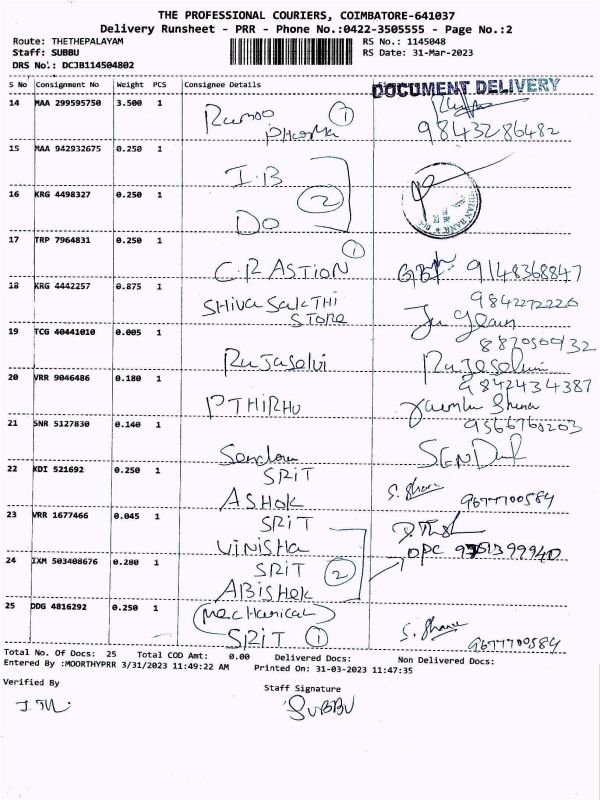 THE PROFESSIONAL COURIERS, COIMBATORE-641037
Delivery Runsheet - PRR - Phone No.:0422-3505555 - Page No.:2
Route: THETHEPALAYAM
RS No.: 1145048
Staff: SUBBU
RS Date: 31-Mar-2023
DRS No.: DCJB114504802
DOCUMENT DELIVERY
S No Consignment No Weight PCS Consignee Details
14 MAA 299595750 3.500 1 Ramoo Pharma 1
9843286482
15 MAA 942932675 0.250 1 I.B
16 KRG 4498327 0.250 1 DO 2
17 TRP 7964831 0.250 1 CRASTION 1 9148368847
18 KRG 4442257 0.875 1 SHIVA SAKTHI STORE 9842272220
19 TCG 40441010 0.005 1 Rajaselvi
20 VRR 9046486 0.180 1 P THIRHU 9842434387
21 SNR 5127830 0.140 1 9566760203
22 KDI 521692 0.250 1 SRIT ASHOK S. Share 9677700584
23 VRR 1677466 0.045 1 SRIT VINISHA
24 IXM 503408676 0.280 1 SRIT ABISHEK 2
25 DDG 4816292 0.250 1 Mechanical SRIT 1 S. Share 9677700584
Total No. Of Docs: 25 Total COD Amt: 0.00 Delivered Docs: Non Delivered Docs:
Entered By :MOORTHYPRR 3/31/2023 11:49:22 AM Printed On: 31-03-2023 11:47:35
Verified By
Staff Signature
SUBBU